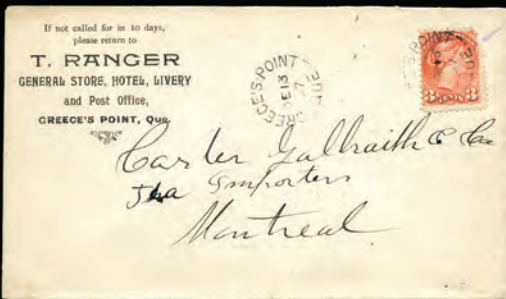 If not called for in 10 days,
please return to
T. RANGER
GENERAL STORE, HOTEL, LIVERY
and Post Office,
GREECE'S POINT, Que.
GREECE'S POINT QUE
DE 13
97
E'S POINT QUE
3 CENTS 3
Carter Galbraith & Co
Tea Importers
Montreal